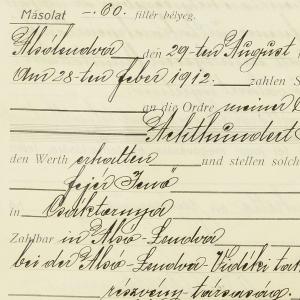 Másolat -.60. fillér bélyeg.
Alsólendva den 29-ten August
Am 28-ten feber 1912. zahlen S
an die Ordre meiner
Achthundert
den Werth erhalten und stellen solch
fejér Jenő
in Csáktornya
Zahlbar in Alsó-Lendva
bei der Alsó-Lendva-Vidéki tak
részvény-társaság.